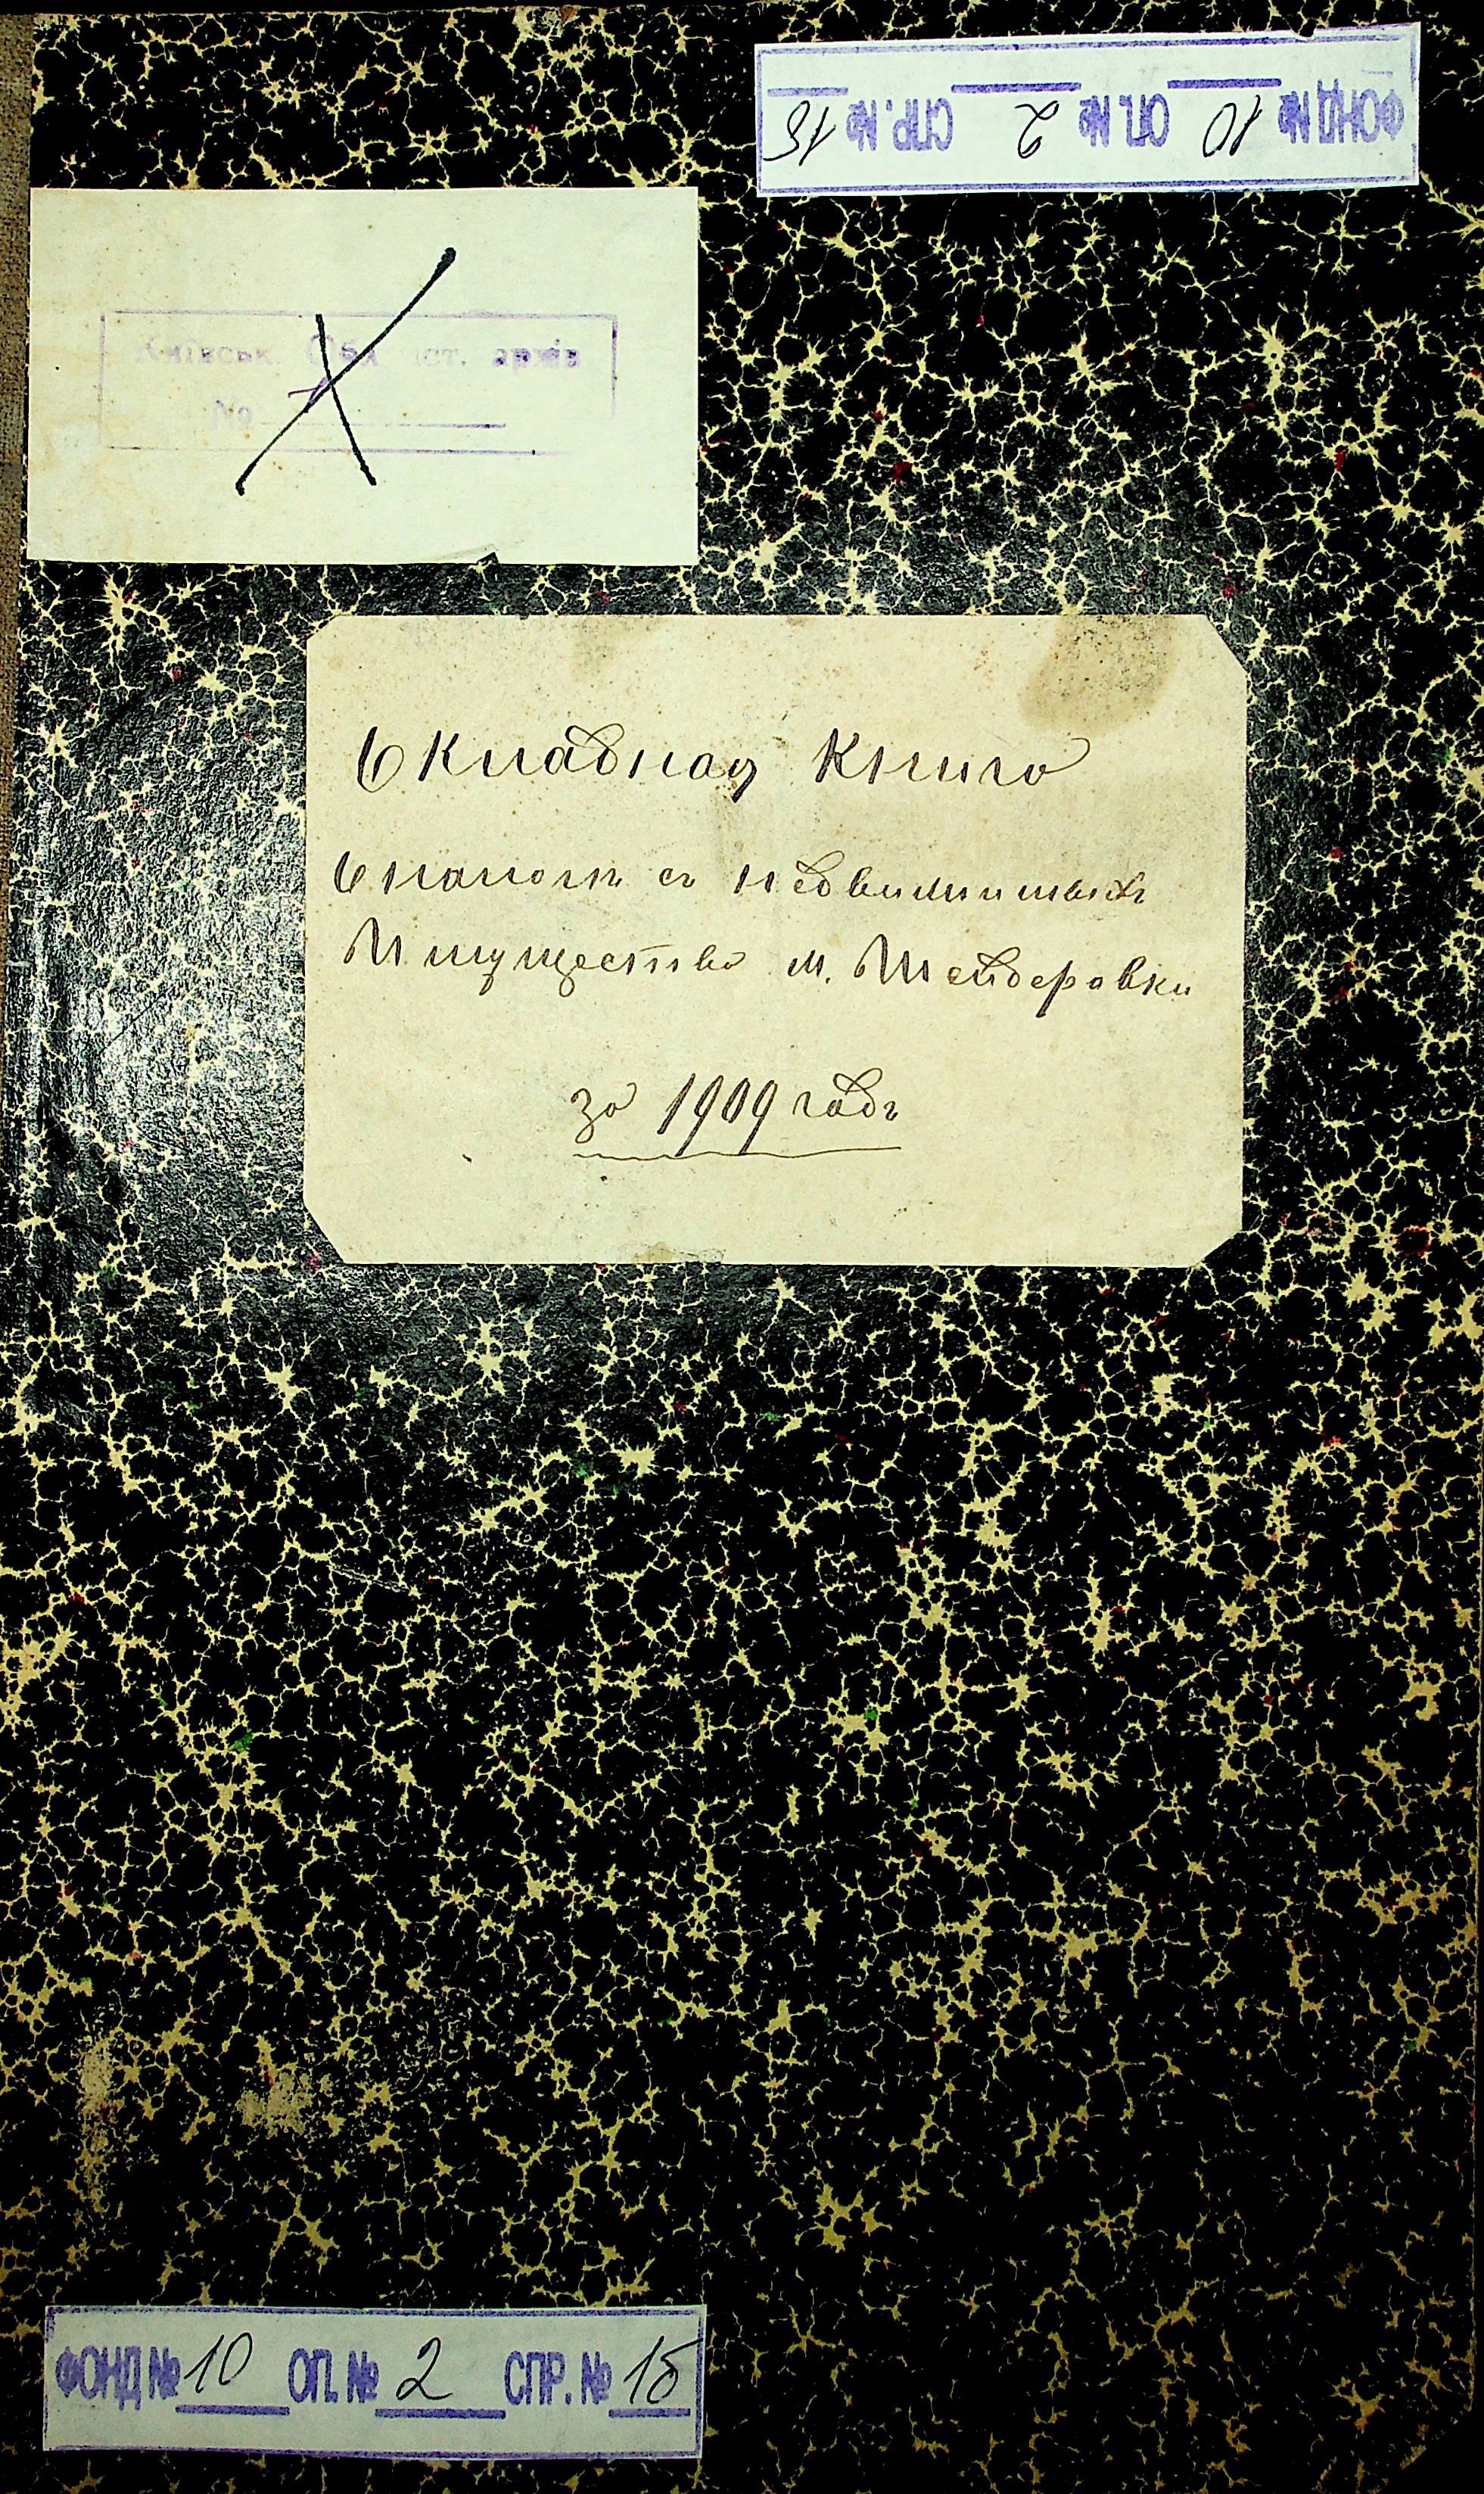 ФОНД № 10 ОП. № 2 СПР. № 15
Київськ. Обл іст. архів
№
Окладная Книга
О налогѣ съ недвижимыхъ
Имущество м. Шендеровки
за 1909 годъ
ФОНД № 10 ОП. № 2 СПР. № 15